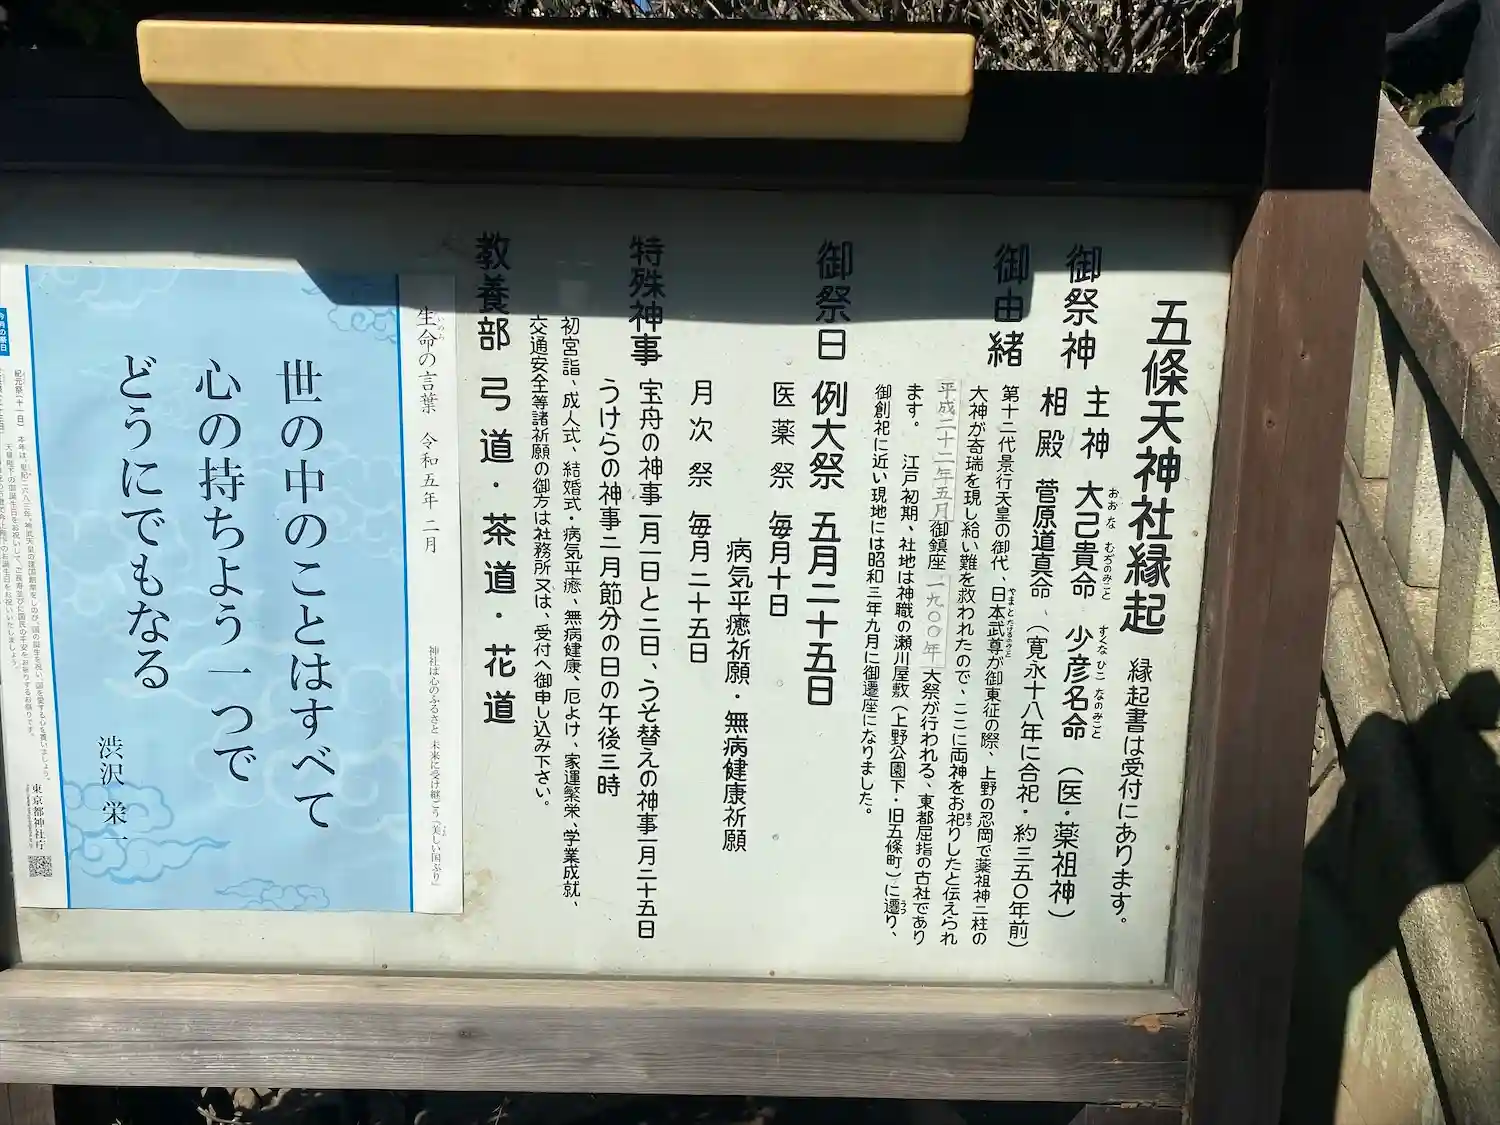 五條天神社縁起 縁起書は受付にあります。
御祭神 主神 大己貴命 少彦名命 (医・薬祖神)
おおなむぢのみこと すくなひこなのみこと
相殿 菅原道真命、(寛永十八年に合祀・約三五〇年前)
御由緒 第十二代景行天皇の御代、日本武尊が御東征の際、上野の忍岡で薬祖神二柱の
やまとたけるのみこと
大神が奇瑞を現し給い難を救われたので、ここに両神をお祀りしたと伝えられ
まつ
平成二十二年五月御鎮座一九〇〇年大祭が行われる、東都屈指の古社であり
ます。 江戸初期、社地は神職の瀬川屋敷(上野公園下・旧五條町)に遷り、
うつ
御創祀に近い現地には昭和三年九月に御遷座になりました。
御祭日 例大祭 五月二十五日
医薬祭 毎月十日
病気平癒祈願・無病健康祈願
月次祭 毎月二十五日
特殊神事 宝舟の神事一月一日と二日、うそ替えの神事一月二十五日
うけらの神事二月節分の日の午後三時
初宮詣、成人式、結婚式・病気平癒、無病健康、厄よけ、家運繁栄、学業成就、
交通安全等諸祈願の御方は社務所又は、受付へ御申し込み下さい。
教養部 弓道・茶道・花道
生命の言葉 令和五年 二月
いのち
神社は心のふるさと 未来に受け継ごう「美しい国ぶり」
世の中のことはすべて
心の持ちよう一つで
どうにでもなる
渋沢 栄一
今月の祭日
紀元祭(十一日)
東京都神社庁